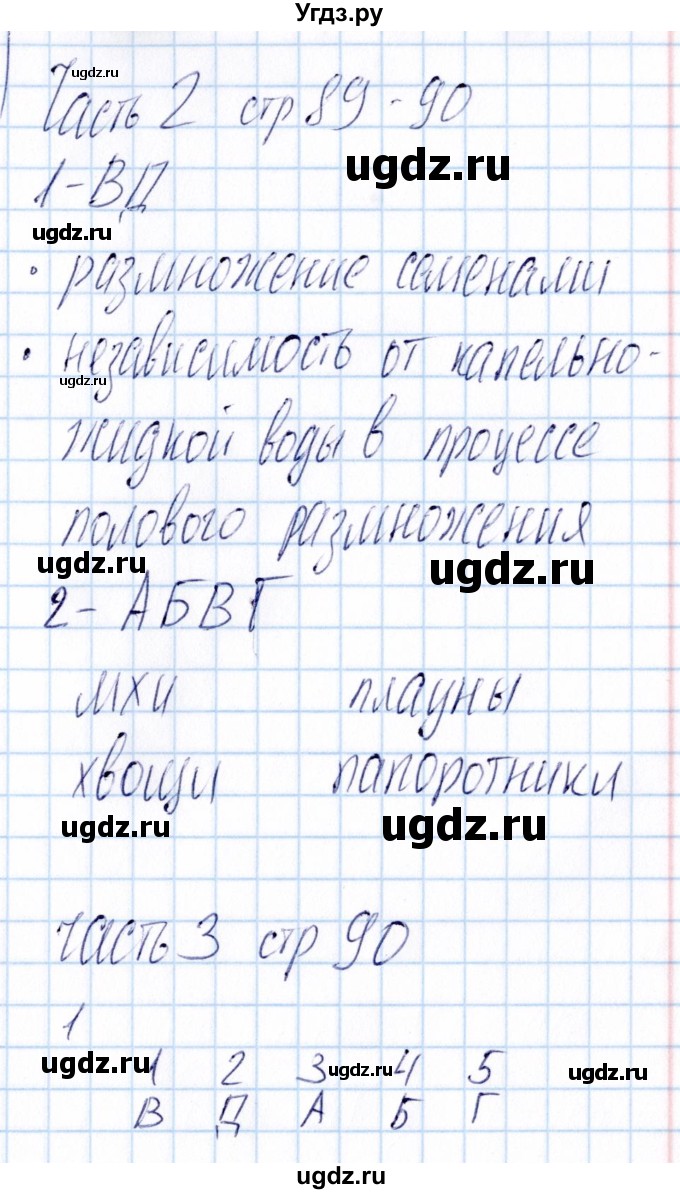 Угдз.ру
ugdz.ru
Часть 2 стр 89-90
ugdz.ru
1-ВД
ugdz.ru
• размножение семенами
• независимость от капельно-
ugdz.ru
жидкой воды в процессе
полового размножения
ugdz.ru ugdz.ru
2-АБВГ
мхи плауны
хвощи папоротники
ugdz.ru ugdz.ru
часть 3 стр 90
1
ugdz.ru ugdz.ru ugdz.ru
1 2 3 4 5
В Д А Б Г
ugdz.ru